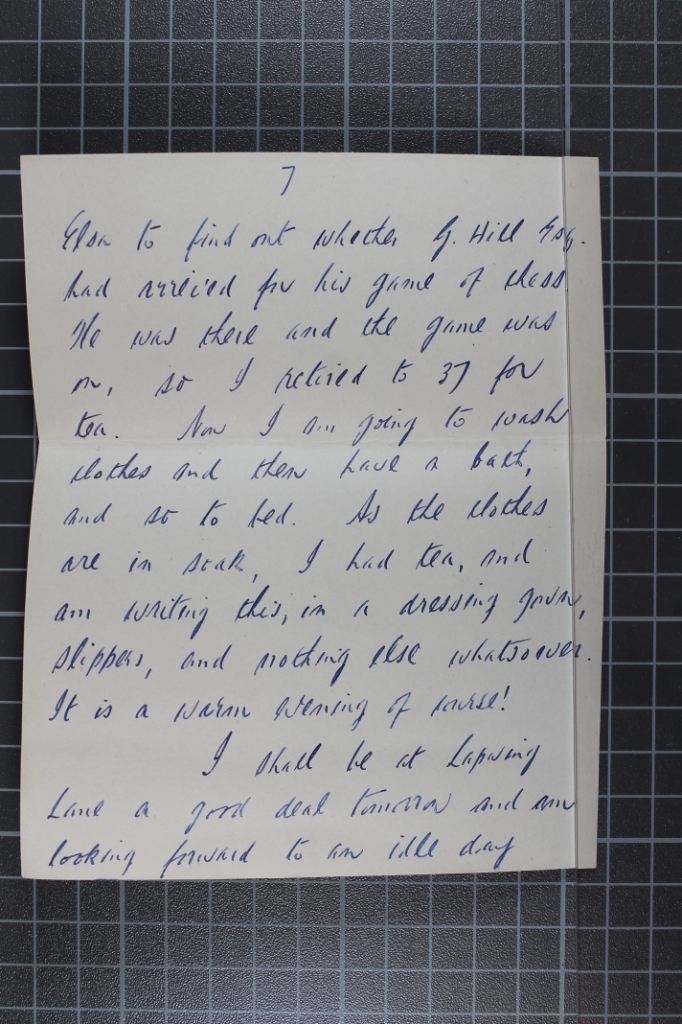 7
Elsa to find out whether G. Hill Esq.
had arrived for his game of chess.
He was there and the game was
on, so I retired to 37 for
tea. Now I am going to wash
clothes and then have a bath,
and so to bed. As the clothes
are in soak, I had tea, and
am writing this, in a dressing gown,
slippers, and nothing else whatsoever.
It is a warm evening of course!
I shall be at Lapwing
Lane a good deal tomorrow and am
looking forward to an idle day